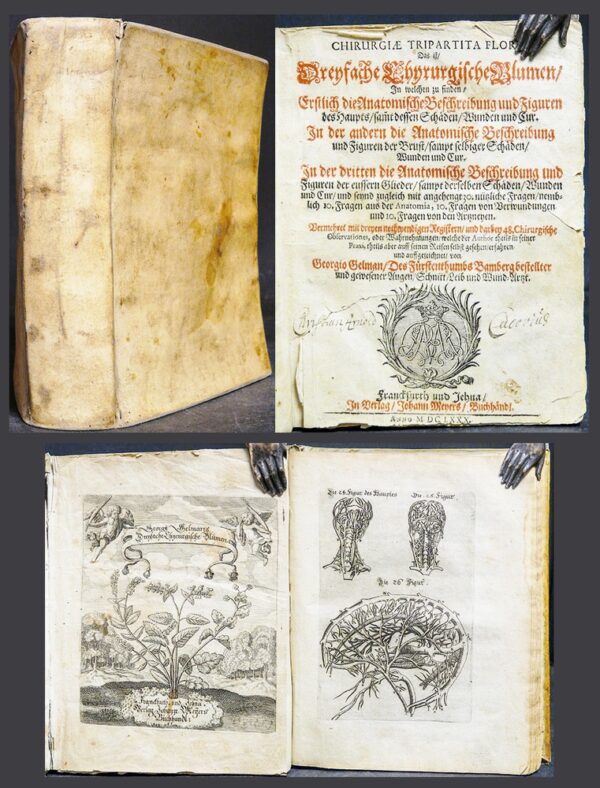 CHIRURGIÆ TRIPARTITA FLOR
Das ist/
Dreyfache Chyrurgische Blumen/
In welchen zu finden/
Erstlich die Anatomische Beschreibung und Figuren
des Haupts/ samt dessen Schäden/ Wunden und Cur.
In der andern die Anatomische Beschreibung
und Figuren der Brust/ sampt selbiger Schäden/
Wunden und Cur.
In der dritten die Anatomische Beschreibung und
Figuren der eussern Glieder/ sampt derselben Schäden/ Wunden
und Cur/ und seynd zugleich mit angehengt 30. nützliche Fragen/ nemb-
lich 10. Fragen aus der Anatomia, 10. Fragen von Verwundungen
und 10. Fragen von den Artzneyen.
Vermehret mit dreyen nothwendigen Registern/ und darbey 48. Chirurgische
Observationes, oder Wahrnehmungen/ welche der Author theils in seiner
Praxi, theils aber auff seinen Reisen selbst gesehen/ erfahren
und auffgezeichnet/ von
Georgio Gelman/ Des Fürstenthumbs Bamberg bestellter
und gewesener Augen, Schnitt/ Leib und Wund-Artzt.
Christian Arnold
Franckfurth und Jehna/
In Verlag/ Johann Meyers/ Buchhändl.
ANNO M DC LXXX.
Georg Gelmans
Dreyfache Chyrurgische Blumen.
Franckfurt und Jehna
Verlag Johann Meyers
Buchhandl:
Die 24. Figur des Hauptes
Die 25. Figur.
Die 26 Figur.